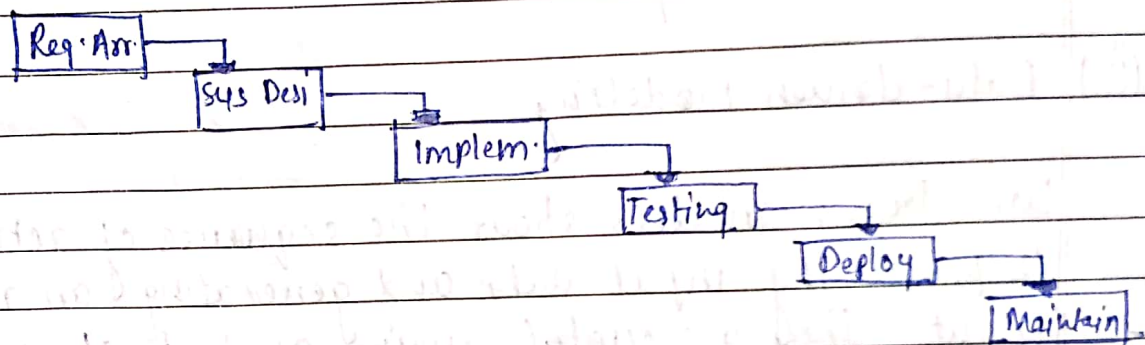 Req. Arr.
Sys Desi
Implem.
Testing
Deploy
Maintain